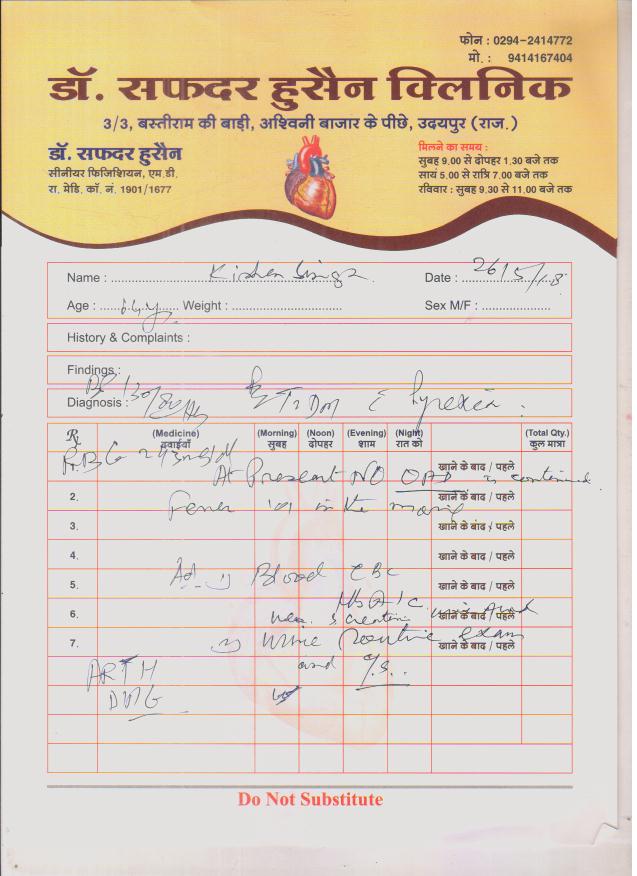 फोन : 0294-2414772
मो. : 9414167404
डॉ. सफदर हुसैन क्लिनिक
3/3, बस्तीराम की बाड़ी, अश्विनी बाजार के पीछे, उदयपुर (राज.)
डॉ. सफदर हुसैन
सीनीयर फिजिशियन, एम.डी.
रा. मेडि. कॉ. नं. 1901/1677
मिलने का समय :
सुबह 9.00 से दोपहर 1.30 बजे तक
सायं 5.00 से रात्रि 7.00 बजे तक
रविवार : सुबह 9.30 से 11.00 बजे तक
Name : Kishen Singh Date : 26/5/18
Age : Weight : Sex M/F :
History & Complaints :
Findings :
BP 130/80
Diagnosis : T2DM c Pyrexia
Rx (Medicine) (Morning) (Noon) (Evening) (Night) (Total Qty.)
दवाईयाँ सुबह दोपहर शाम रात को कुल मात्रा
RBG 243mg/dl खाने के बाद / पहले
At Present NO OAD is continued
2. खाने के बाद / पहले
Fever 101 in the morning
3. खाने के बाद / पहले
4. खाने के बाद / पहले
Ad Blood CBC
5. खाने के बाद / पहले
HbA1C
6. Urea, S creatin Uric Acid खाने के बाद / पहले
7. Urine Routine Exam खाने के बाद / पहले
and C/S
Do Not Substitute